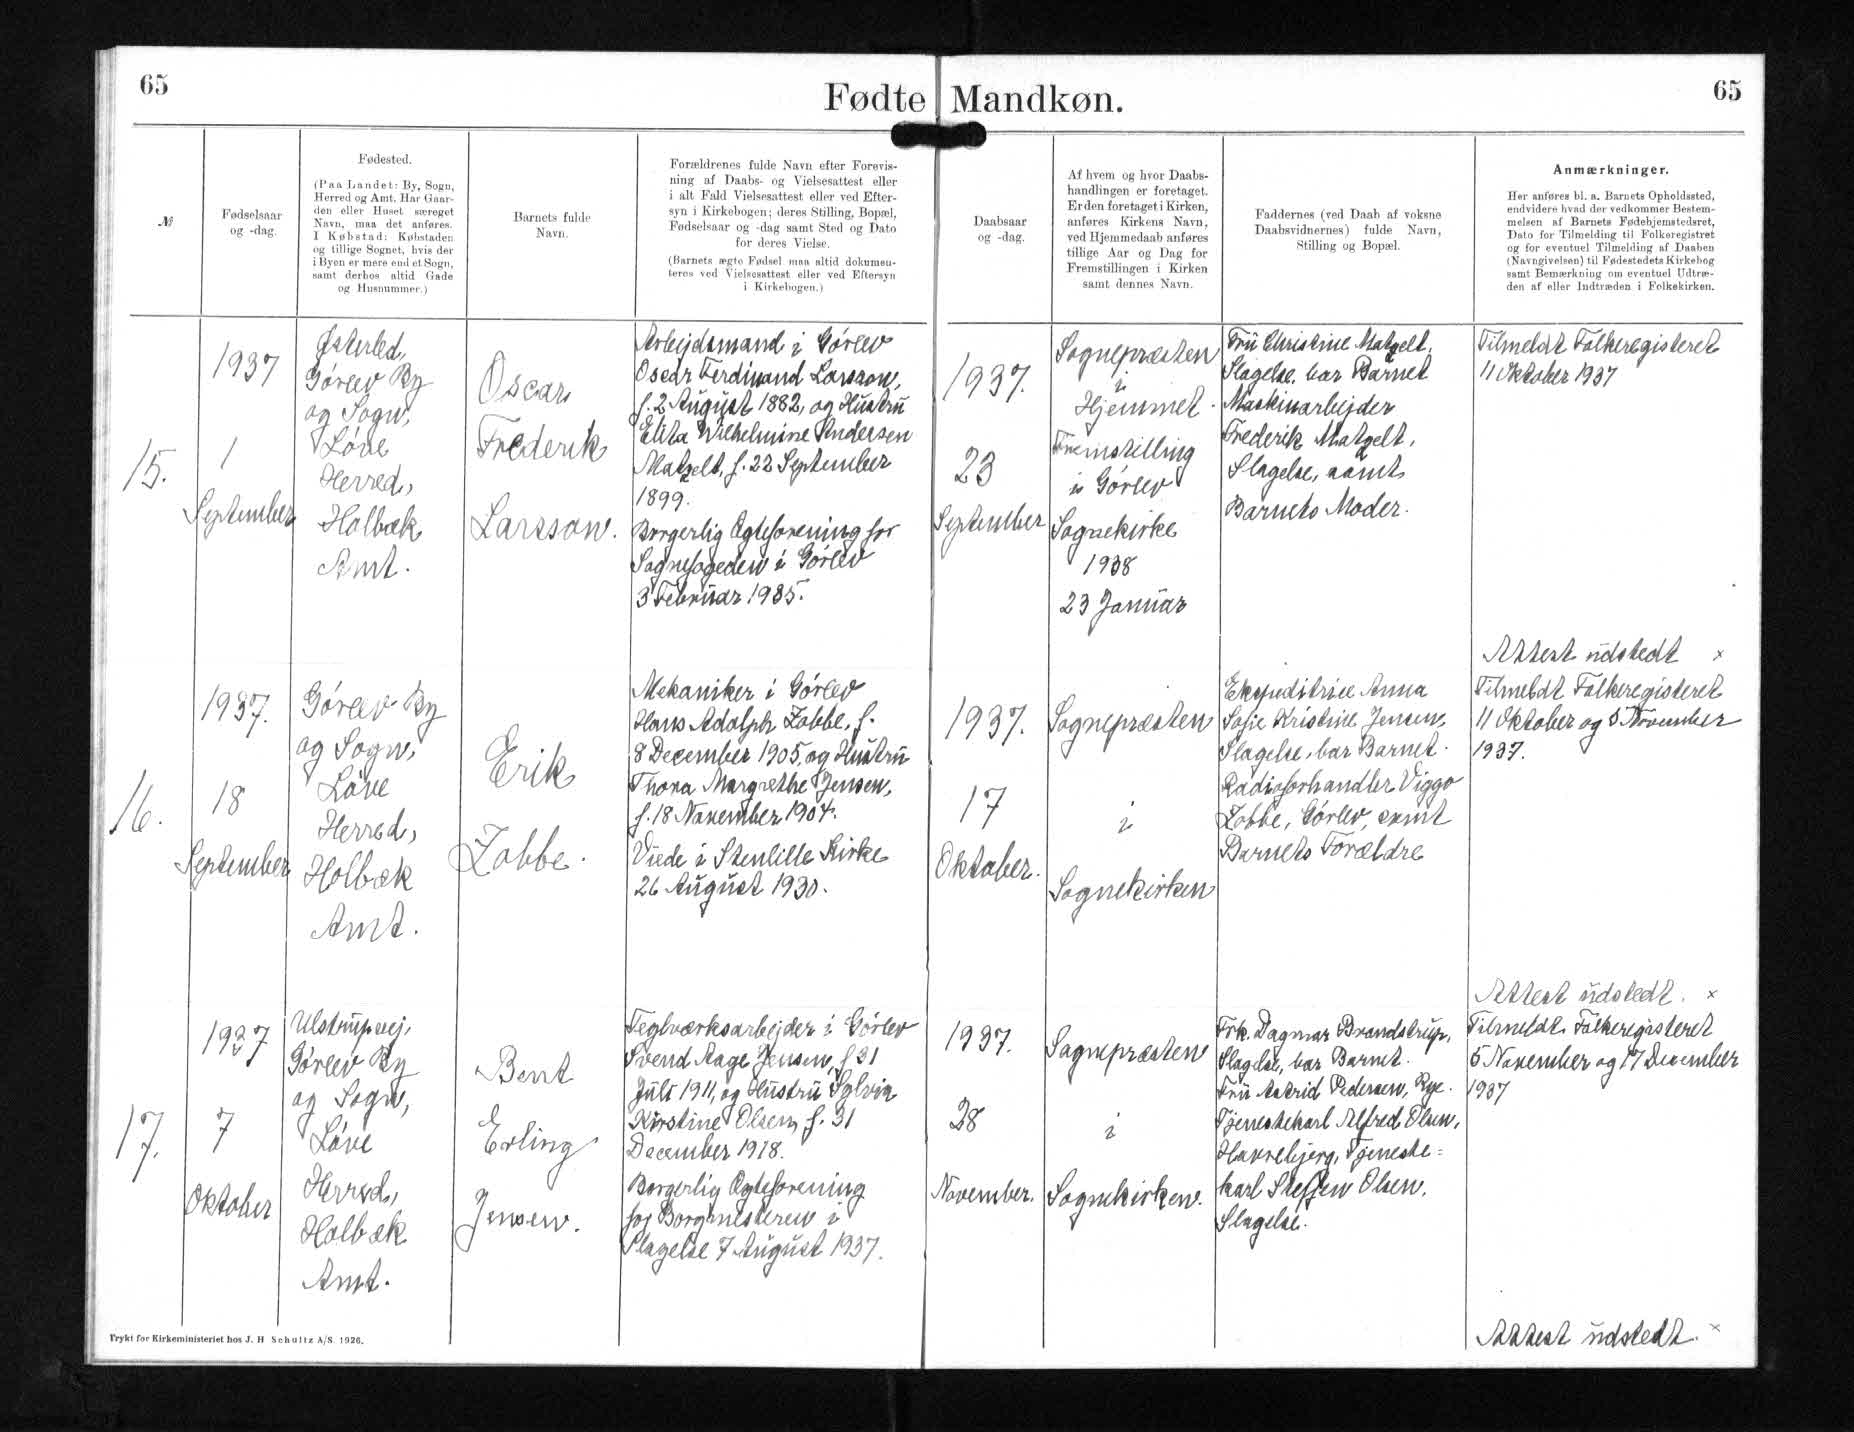 65
Fødte Mandkøn.
65
№
Fødselsaar
og -dag.
Fødested.
(Paa Landet: By, Sogn,
Herred og Amt. Har Gaar-
den eller Huset særeget
Navn, maa det anføres.
I Købstad: Købstaden
og tillige Sognet, hvis der
i Byen er mere end et Sogn,
samt derhos altid Gade
og Husnummer.)
Barnets fulde
Navn.
Forældrenes fulde Navn efter Forevis-
ning af Daabs- og Vielsesattest eller
i alt Fald Vielsesattest eller ved Efter-
syn i Kirkebogen; deres Stilling, Bopæl,
Fødselsaar og -dag samt Sted og Dato
for deres Vielse.
(Barnets ægte Fødsel maa altid dokumen-
teres ved Vielsesattest eller ved Eftersyn
i Kirkebogen.)
Daabsaar
og -dag.
Af hvem og hvor Daabs-
handlingen er foretaget.
Er den foretaget i Kirken,
anføres Kirkens Navn,
ved Hjemmedaab anføres
tillige Aar og Dag for
Fremstillingen i Kirken
samt dennes Navn.
Faddernes (ved Daab af voksne
Daabsvidnernes) fulde Navn,
Stilling og Bopæl.
Anmærkninger.
Her anføres bl. a. Barnets Opholdssted,
endvidere hvad der vedkommer Bestem-
melsen af Barnets Fødehjemstedsret,
Dato for Tilmelding til Folkeregistret
og for eventuel Tilmelding af Daaben
(Navngivelsen) til Fødestedets Kirkebog
samt Bemærkning om eventuel Udtræ-
den af eller Indtræden i Folkekirken.
15.
1937
1
September
Østerled,
Gørlev By
og Sogn,
Løve
Herred,
Holbæk
Amt.
Oscar
Frederik
Larsson.
Arbejdsmand i Gørlev
Oscar Ferdinand Larsson,
f. 2 August 1882, og Hustru
Elita Wilhelmine Andersen
Matzelt, f. 22 September
1899.
Borgerlig Ægteforening for
Sognefogeden i Gørlev
3 Februar 1935.
1937.
23
September
Sognepræsten
i
Hjemmet.
Fremstilling
i Gørlev
Sognekirke
1938
23 Januar
Fru Christine Matzelt,
Slagelse, bar Barnet
Maskinarbejder
Frederik Matzelt,
Slagelse, samt
Barnets Moder.
Tilmeldt Folkeregisteret
11 Oktober 1937
Attest udstedt x
16.
1937.
18
September
Gørlev By
og Sogn,
Løve
Herred,
Holbæk
Amt.
Erik
Zobbe.
Mekaniker i Gørlev
Hans Adolph Zobbe, f.
8 December 1905, og Hustru
Thora Margrethe Jensen,
f. 18 November 1904.
Viede i Stenlille Kirke
26 August 1930.
1937.
17
Oktober.
Sognepræsten
i
Sognekirken
Ekspeditrice Anna
Sofie Kristine Jensen,
Slagelse, bar Barnet.
Radioforhandler Viggo
Zobbe, Gørlev, samt
Barnets Forældre
Tilmeldt Folkeregisteret
11 Oktober og 5 November
1937.
Attest udstedt. x
17.
1937
7
Oktober
Ulstrupvej,
Gørlev By
og Sogn,
Løve
Herred,
Holbæk
Amt.
Bent
Erling
Jensen.
Teglværksarbejder i Gørlev
Svend Aage Jensen, f 31
Juli 1911, og Hustru Sylvia
Kirstine Olsen, f. 31
December 1918.
Borgerlig Ægteforening
for Borgmesteren i
Slagelse 7 August 1937.
1937.
28
November.
Sognepræsten
i
Sognekirken.
Frk. Dagmar Brandstrup,
Slagelse, bar Barnet.
Fru Astrid Pedersen, Rye.
Tjenestekarl Alfred Olsen,
Havrebjerg, Tjeneste=
karl Steffen Olsen,
Slagelse.
Tilmeldt Folkeregisteret
5 November og 17 December
1937
Attest udstedt. x
Trykt for Kirkeministeriet hos J. H. Schultz A/S. 1926.